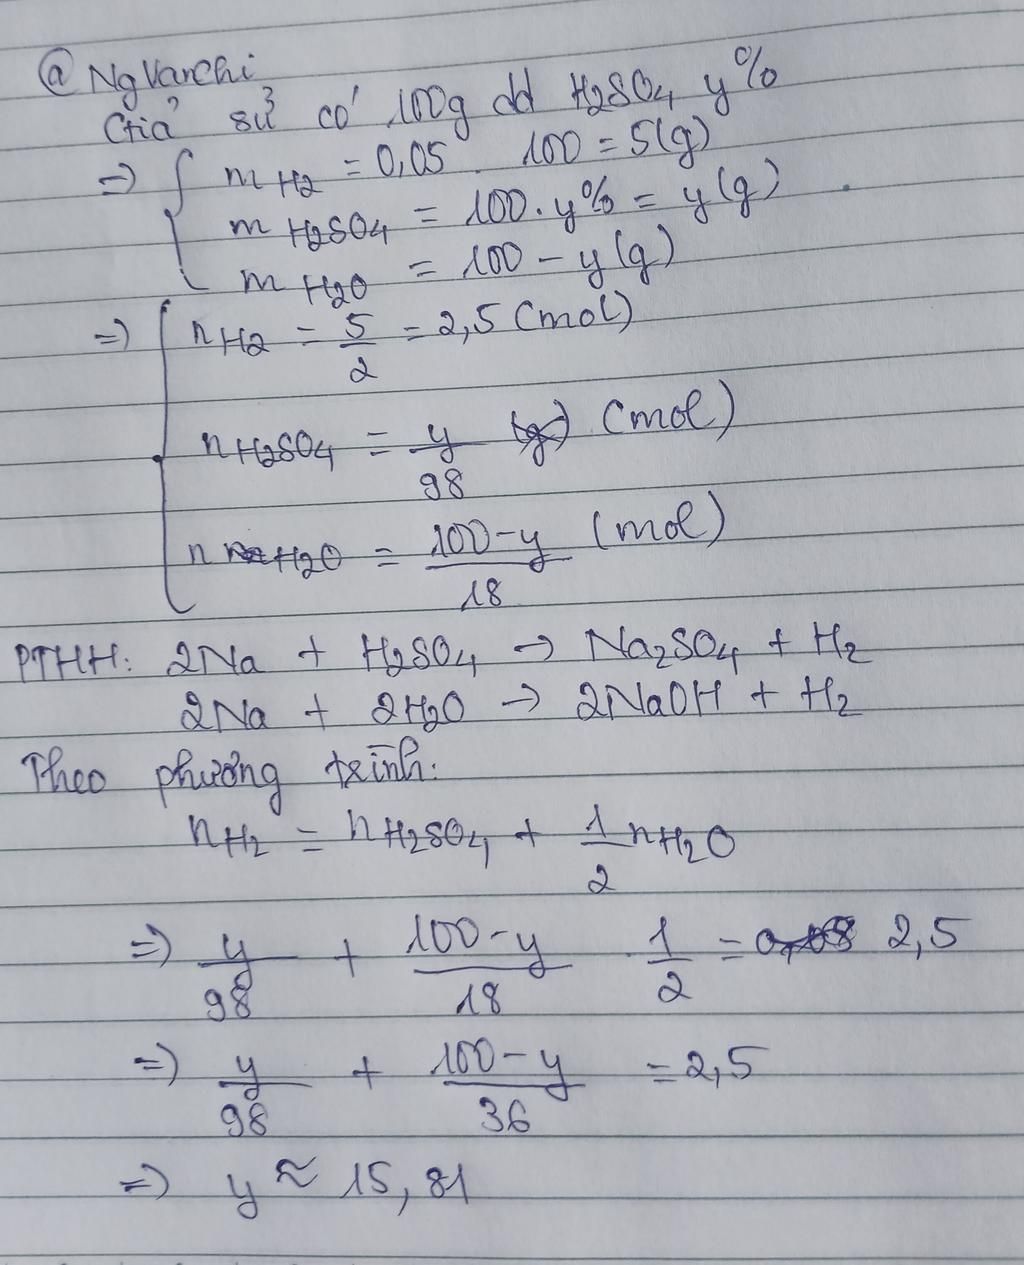 @NgVanChi
Giả sử có 100g dd H2SO4 y%
=> { mH2 = 0,05 . 100 = 5(g)
mH2SO4 = 100 . y% = y(g)
mH2O = 100 - y(g)
=> { nH2 = 5/2 = 2,5 (mol)
nH2SO4 = y/98 (mol)
nH2O = 100-y/18 (mol)
PTHH: 2Na + H2SO4 → Na2SO4 + H2
2Na + 2H2O → 2NaOH + H2
Theo phương trình:
nH2 = nH2SO4 + 1/2 nH2O
=> y/98 + 100-y/18 . 1/2 = 2,5
=> y/98 + 100-y/36 = 2,5
=> y ≈ 15,81